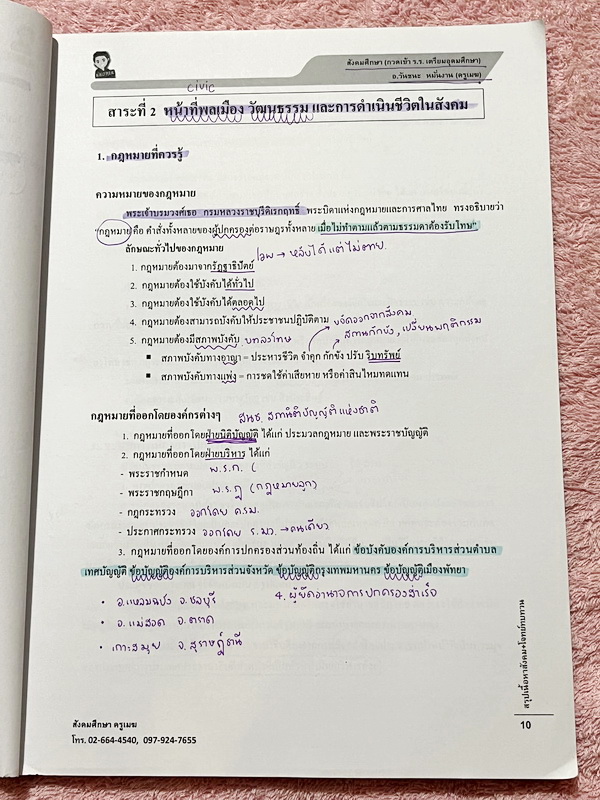 สังคมศึกษา (กวดเข้า ร.ร. เตรียมอุดมศึกษา)
อ.วันชนะ หมั่นงาน (ครูเมฆ)
civic
สาระที่ 2 หน้าที่พลเมือง วัฒนธรรม และการดำเนินชีวิตในสังคม
1. กฎหมายที่ควรรู้
ความหมายของกฎหมาย
พระเจ้าบรมวงศ์เธอ กรมหลวงราชบุรีดิเรกฤทธิ์ พระบิดาแห่งกฎหมายและการศาลไทย ทรงอธิบายว่า
"กฎหมาย คือ คำสั่งทั้งหลายของผู้ปกครองต่อราษฎรทั้งหลาย เมื่อไม่ทำตามแล้วตามธรรมดาต้องรับโทษ"
ลักษณะทั่วไปของกฎหมาย
→ หลับได้ แต่ไม่ตาย
1. กฎหมายต้องมาจากรัฏฐาธิปัตย์
2. กฎหมายต้องใช้บังคับได้ทั่วไป
3. กฎหมายต้องใช้บังคับได้ตลอดไป
4. กฎหมายต้องสามารถบังคับให้ประชาชนปฏิบัติตาม ขจัดออกจากสังคม
5. กฎหมายต้องมีสภาพบังคับ บทลงโทษ สถานกักขัง, เปลี่ยนพฤติกรรม
■ สภาพบังคับทางอาญา = ประหารชีวิต จำคุก กักขัง ปรับ ริบทรัพย์
■ สภาพบังคับทางแพ่ง = การชดใช้ค่าเสียหาย หรือค่าสินไหมทดแทน
กฎหมายที่ออกโดยองค์กรต่างๆ สนช. สภานิติบัญญัติแห่งชาติ
1. กฎหมายที่ออกโดยฝ่ายนิติบัญญัติ ได้แก่ ประมวลกฎหมาย และพระราชบัญญัติ
2. กฎหมายที่ออกโดยฝ่ายบริหาร ได้แก่
- พระราชกำหนด พ.ร.ก. (
- พระราชกฤษฎีกา พ.ร.ฎ (กฎหมายลูก)
- กฎกระทรวง ออกโดย ค.รม.
- ประกาศกระทรวง ออกโดย ร.มว. → คนเดียว
3. กฎหมายที่ออกโดยองค์การปกครองส่วนท้องถิ่น ได้แก่ ข้อบังคับองค์การบริหารส่วนตำบล
เทศบัญญัติ ข้อบัญญัติองค์การบริหารส่วนจังหวัด ข้อบัญญัติกรุงเทพมหานคร ข้อบัญญัติเมืองพัทยา
• อ.แหลมฉบัง จ.ชลบุรี 4. ผู้ยึดอำนาจการปกครองสำเร็จ
• อ.แม่สอด จ.ตราด
• เกาะสมุย จ.สุราษฎร์ธานี
สรุปเนื้อหาสังคม+โจทย์ทบทวน
10
สังคมศึกษา ครูเมฆ
โทร. 02-664-4540, 097-924-7655